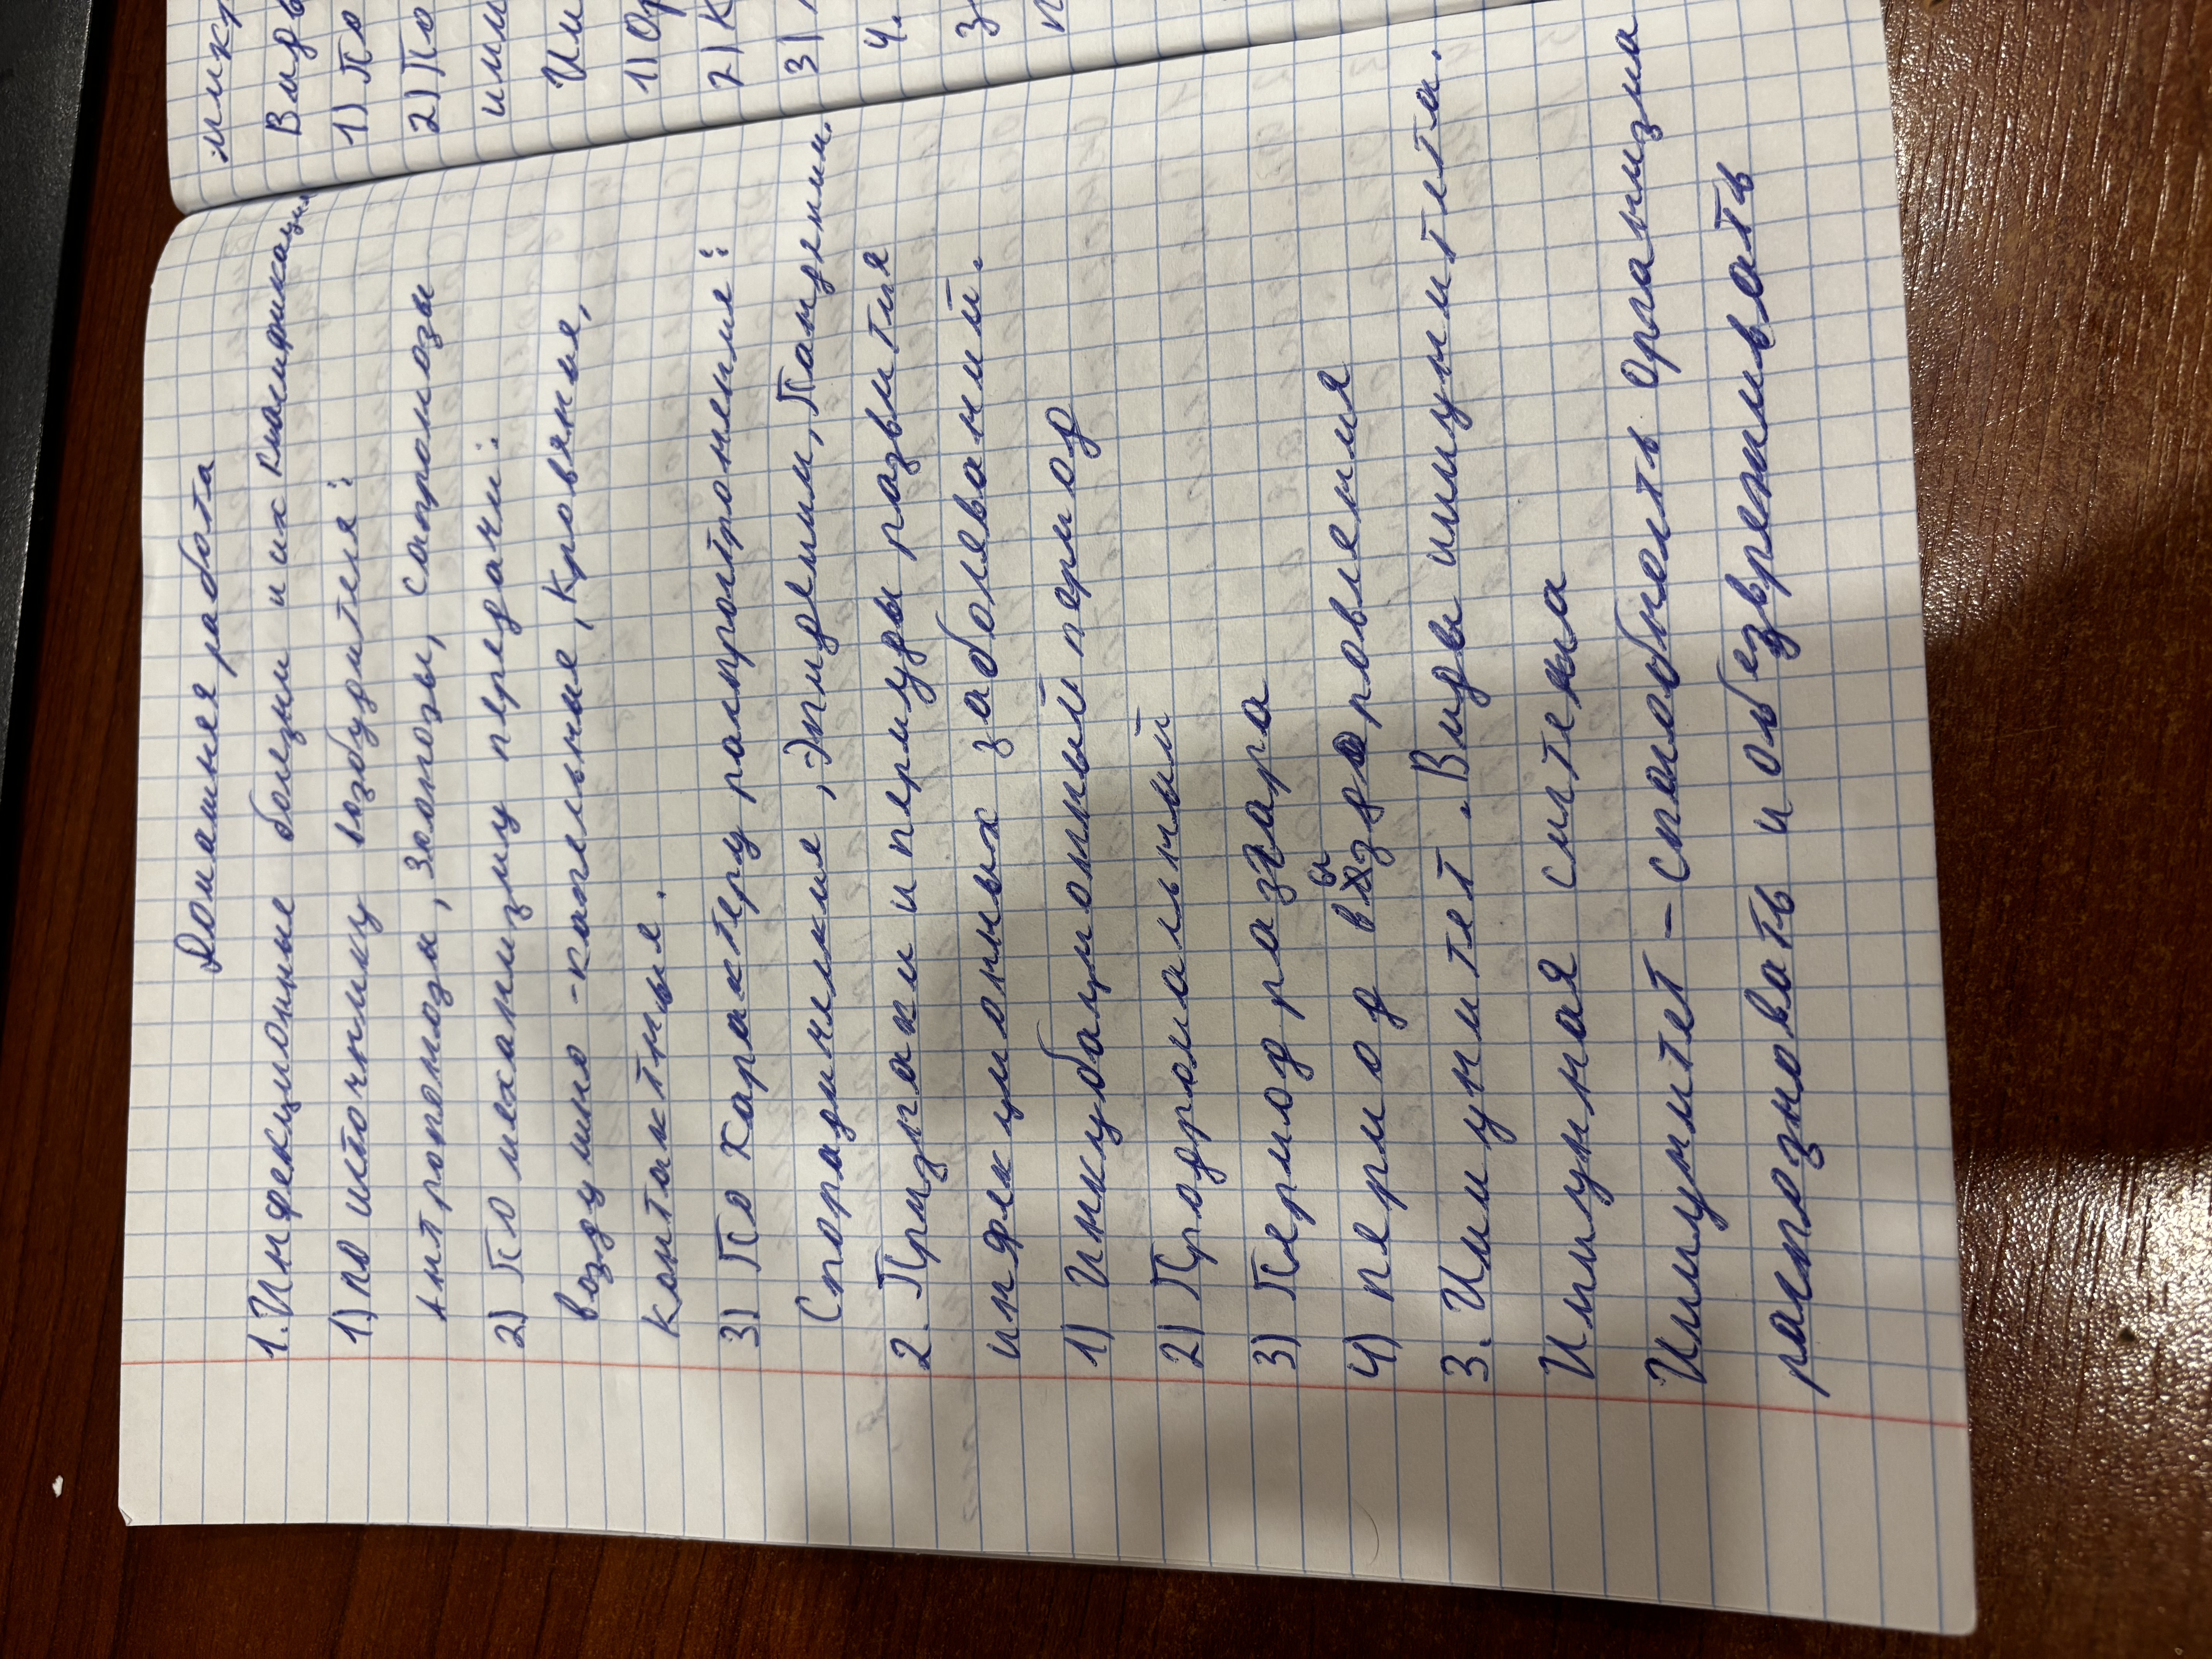 Домашняя работа
1. Инфекционные болезни и их классификация
1) по источнику возбудителя:
антропонозы, зоонозы, сапронозы
2) По механизму передачи:
воздушно-капельные, кровяные,
контактные.
3) По характеру распространения:
Спорадические, Эпидемии, Пандемии.
2. Признаки и периуды развития
инфекционных заболеваний.
1) Инкубационный период
2) Продромальный
3) Период разгара
4) период выздоровления
3. Иммунитет. Виды иммунитета.
Иммунная система
Иммунитет - способность организма
распозновать и обезвреживать
Вид
1) По
2) По
имм
Им
1) Ор
2) К
3)
4.